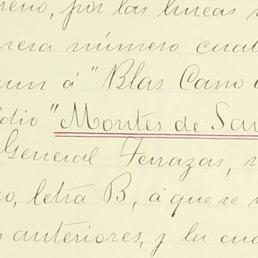 reno, por las lineas
rera número cual
um á "Blas Cano
dio "Montes de Sar
General Terrazas,
o, letra B, á que se
s anteriores, y la cua